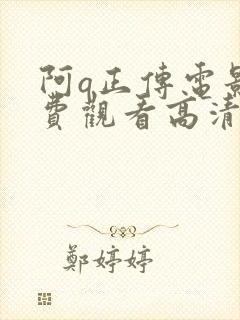 阿q正傳電影
費觀看高清
鄭婷婷